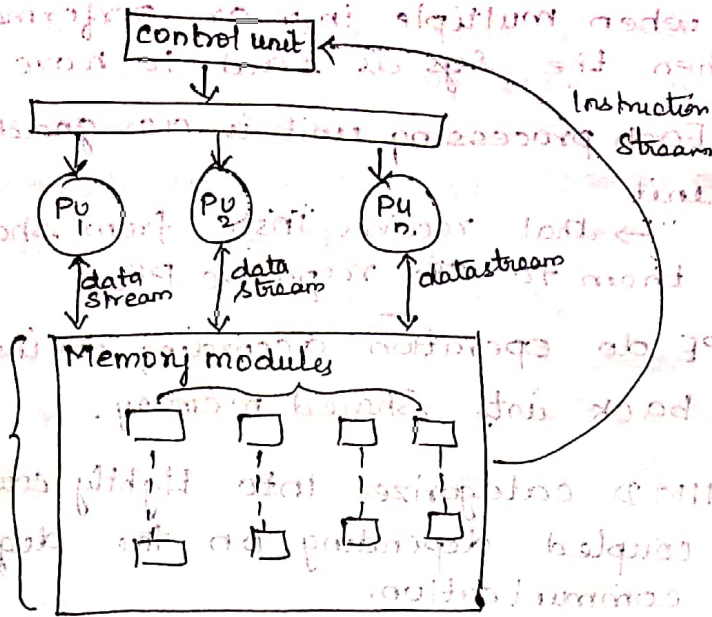 control unit
Instruction
stream
PU
1
PU
2
PU
n.
data
stream
data
stream
datastream
Memory modules